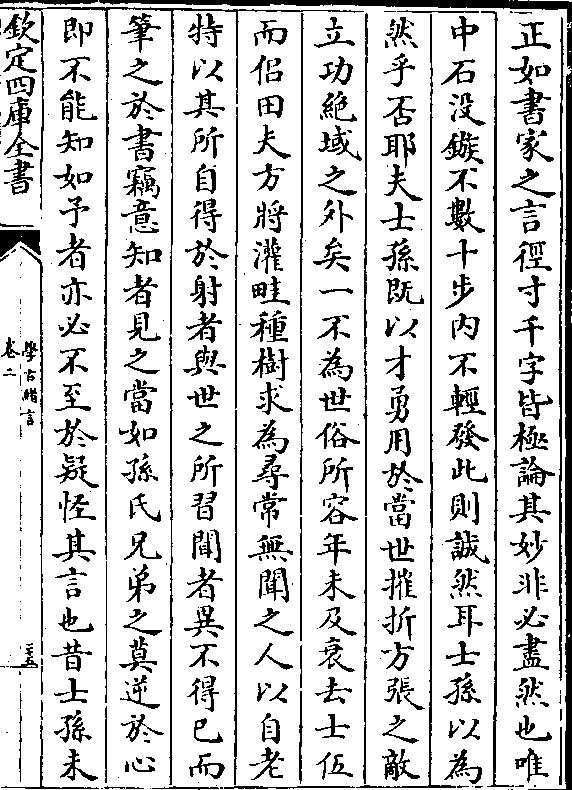 正如書家之言徑寸千字皆極論其妙非必盡然也唯
中石没鏃不數十步内不輕發此則誠然耳士孫以為
然乎否耶夫士孫既以才勇用於當世摧折方張之敵
立功絶域之外矣一不為世俗所容年未及衰去士伍
而侣田夫方將灌畦種樹求為尋常無聞之人以自老
特以其所自得於射者與世之所習聞者異不得已而
筆之於書竊意知者見之當如孫氏兄弟之莫逆於心
即不能知如予者亦必不至於疑怪其言也昔士孫未
欽定四庫全書
學古緒言
卷二
三五